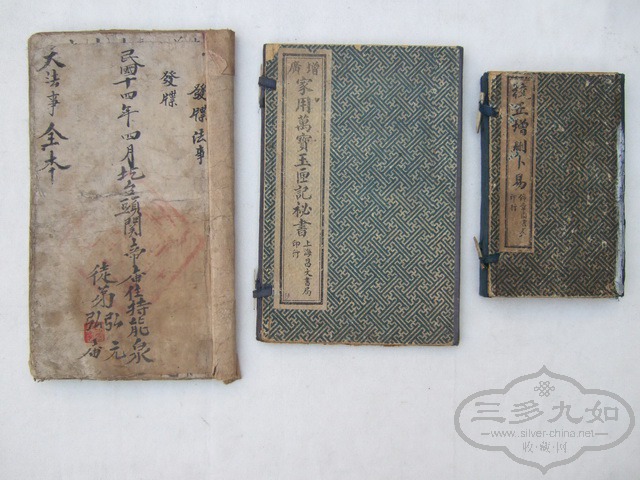 發牒法事
發牒
民國十四年四月圪立頭關帝廟住持能泉
徒弟弘元
大法事全本
增廣
家用萬寶玉匣記秘書
上海昌文書局
印行
校正增刪卜易
印行
三多九如
www.silver-china.net
收·藏·网